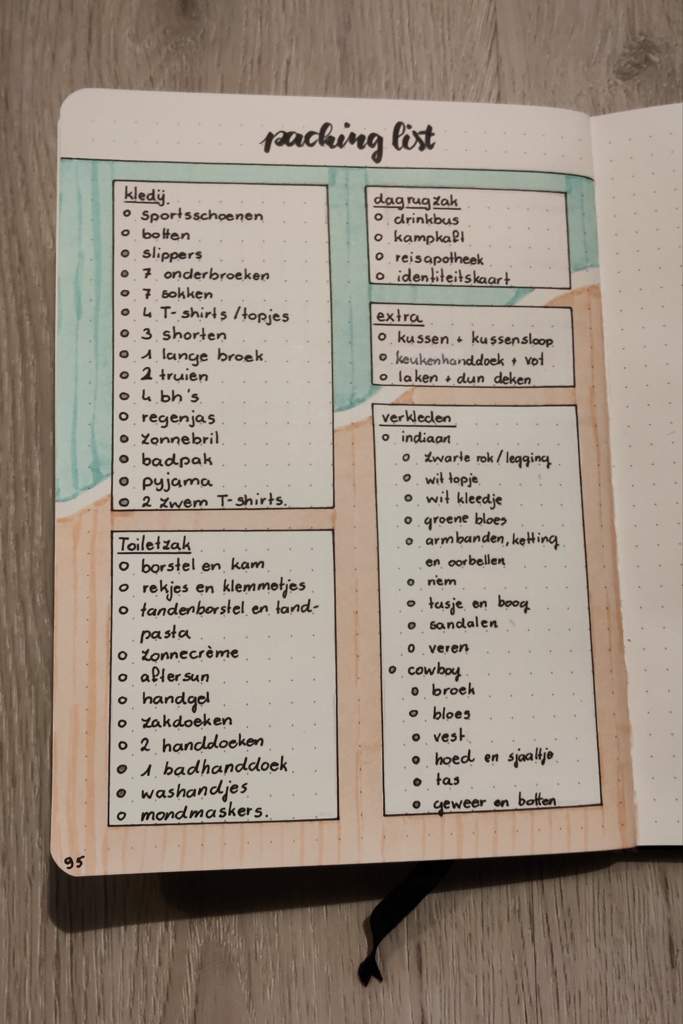 packing list
kledij
sportsschoenen
botten
slippers
7 onderbroeken
7 sokken
4 T-shirts/topjes
3 shorten
1 lange broek
2 truien
4 bh's
regenjas
zonnebril
badpak
pyjama
2 zwem T-shirts.
Toiletzak
borstel en kam
rekjes en klemmetjes
tandenborstel en tand-
pasta
zonnecrème
aftersun
handgel
zakdoeken
2 handdoeken
1 badhanddoek
washandjes
mondmaskers.
dagrugzak
drinkbus
kampkaft
reisapotheek
identiteitskaart
extra
kussen + kussensloop
keukenhanddoek + vot
laken + dun deken
verkleden
indiaan
zwarte rok/legging
wit topje
wit kleedje
groene bloes
armbanden, ketting
en oorbellen
riem
tasje en boog
sandalen
veren
cowboy
broek
bloes
vest
hoed en sjaaltje
tas
geweer en botten
95